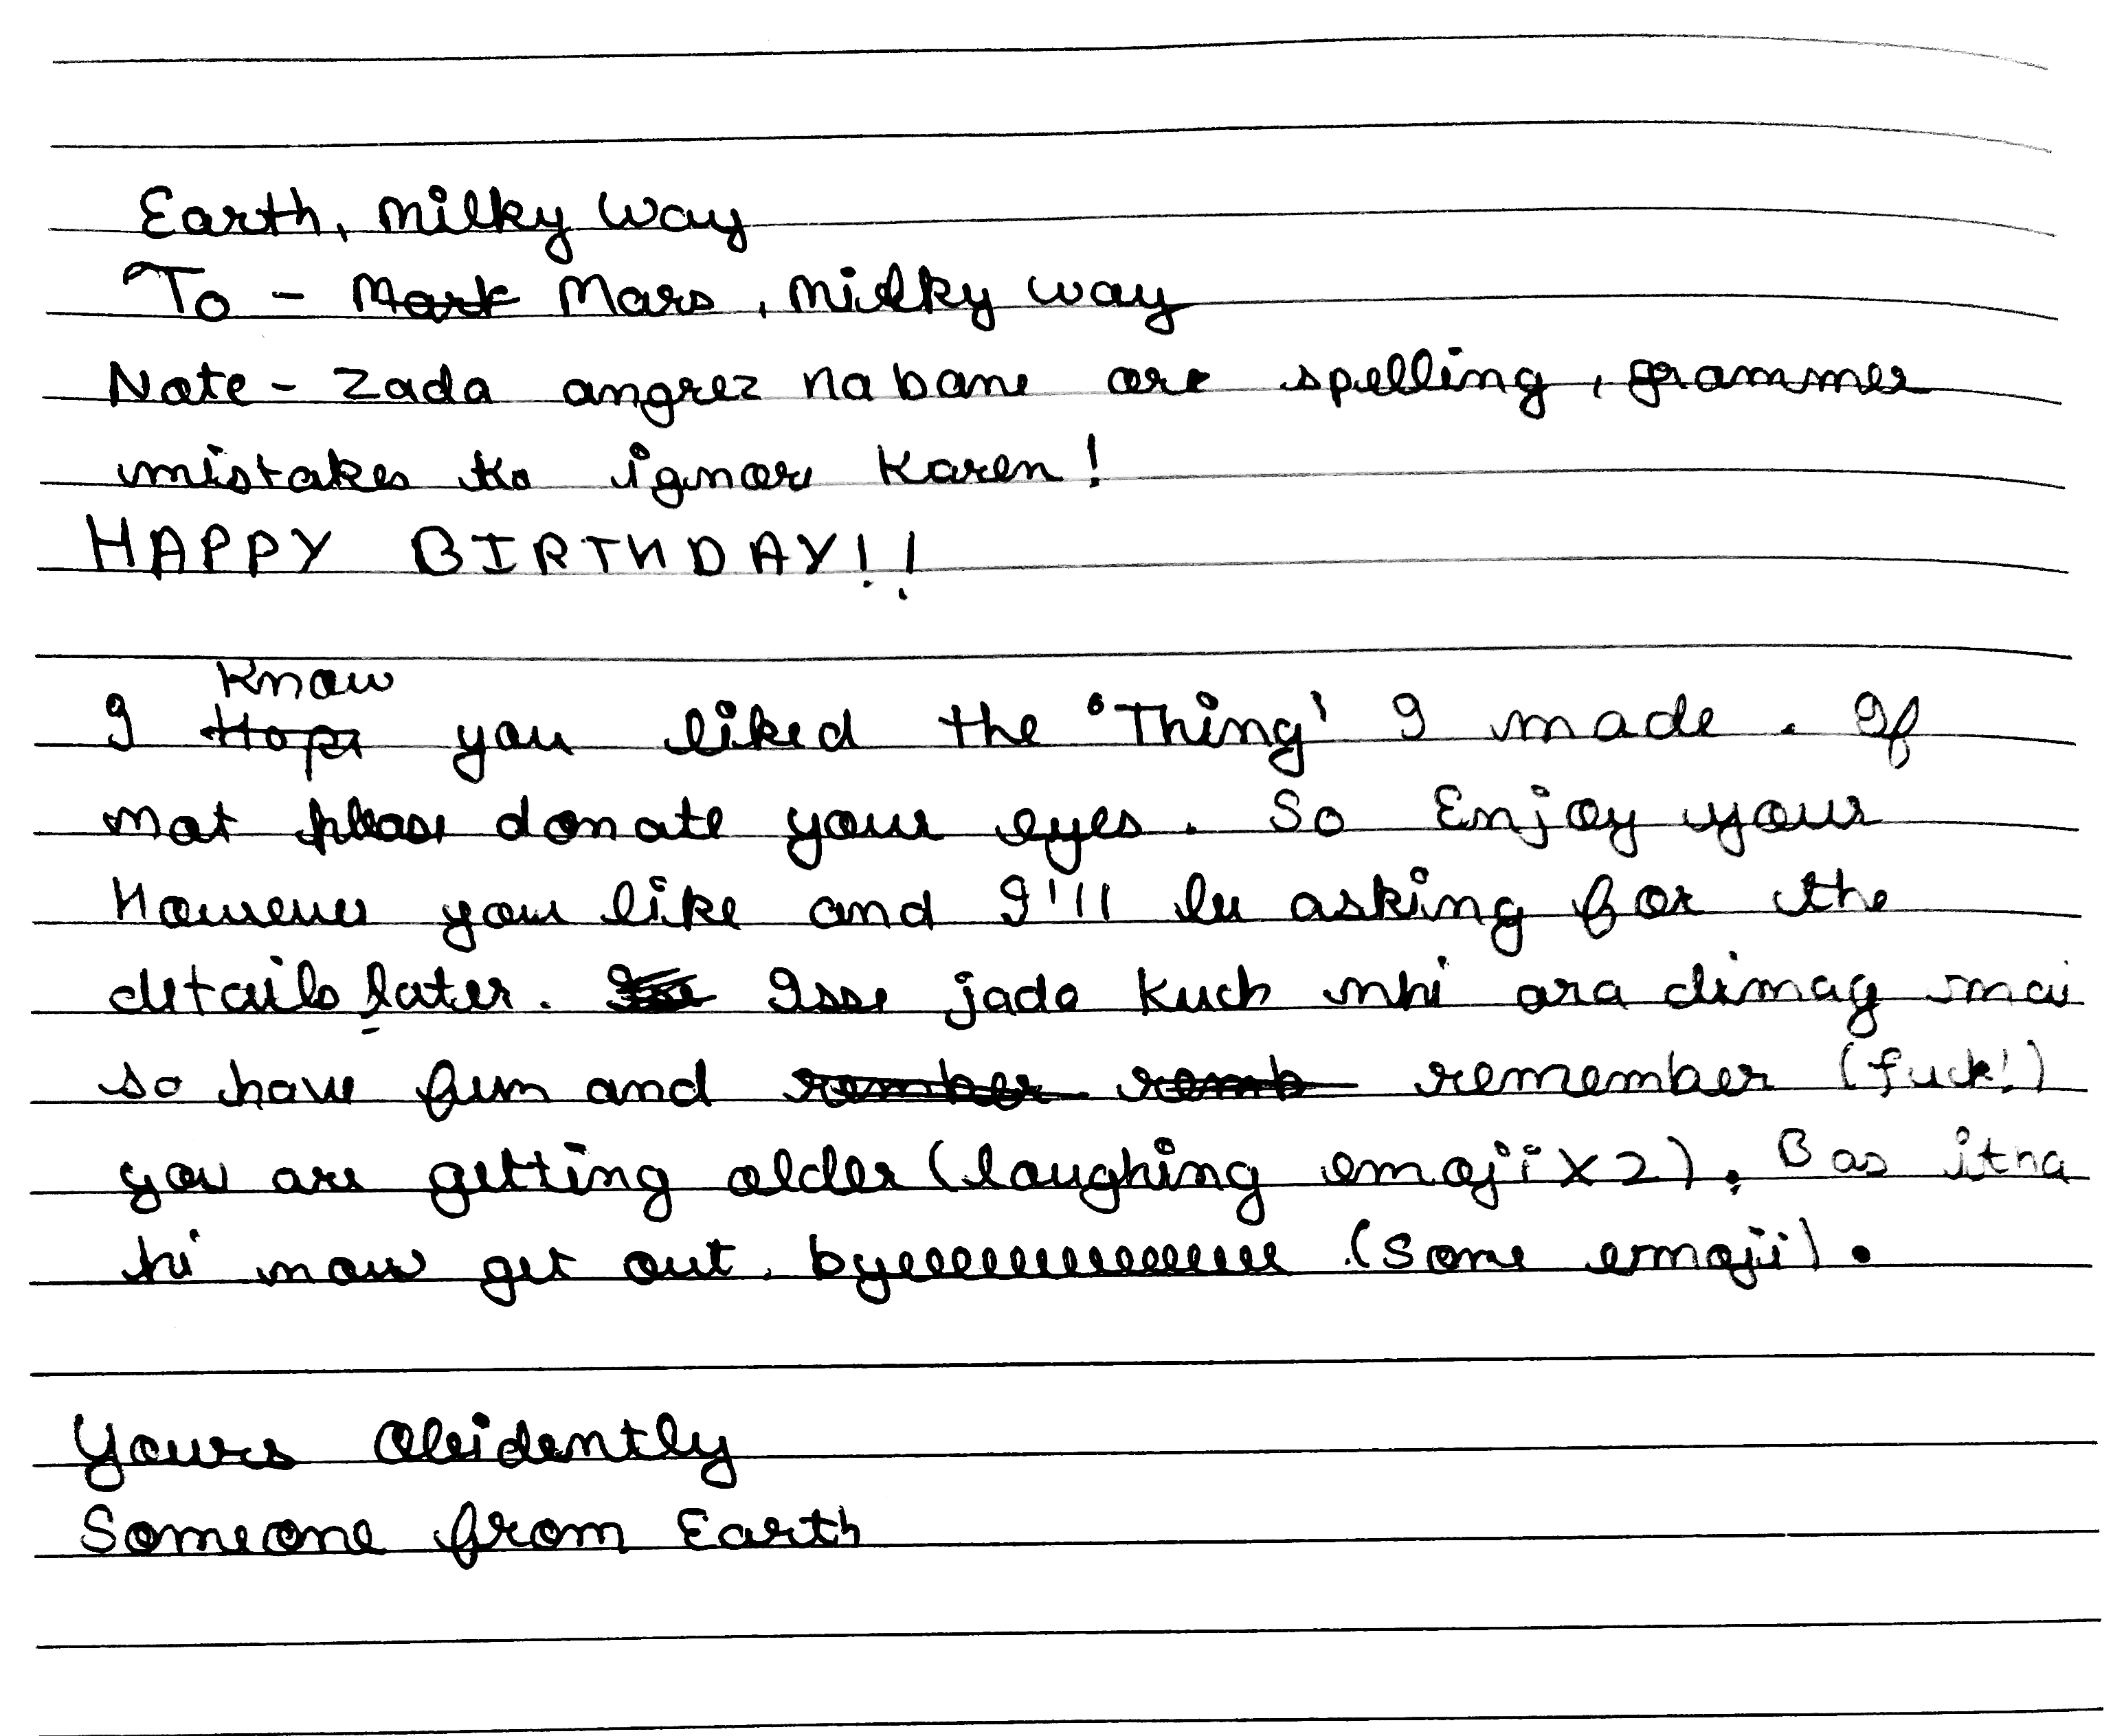 Earth, Milky Way
To - Mark Mars, Milky way
Note - Zada angrez na bane or spelling, grammer
mistakes ko ignore karen!
HAPPY BIRTHDAY!!
know
I Hope you liked the 'Thing' I made. If
not please donate your eyes. So Enjoy your
However you like and I'll be asking for the
details later. Isse jada kuch nhi ara dimag mai
so have fun and rember remb remember (fuck!)
you are getting older (laughing emoji x 2). Bas itna
hi now get out. byeeeeeeeeeeeeee (Some emoji).
Yours Obidently
Someone from Earth